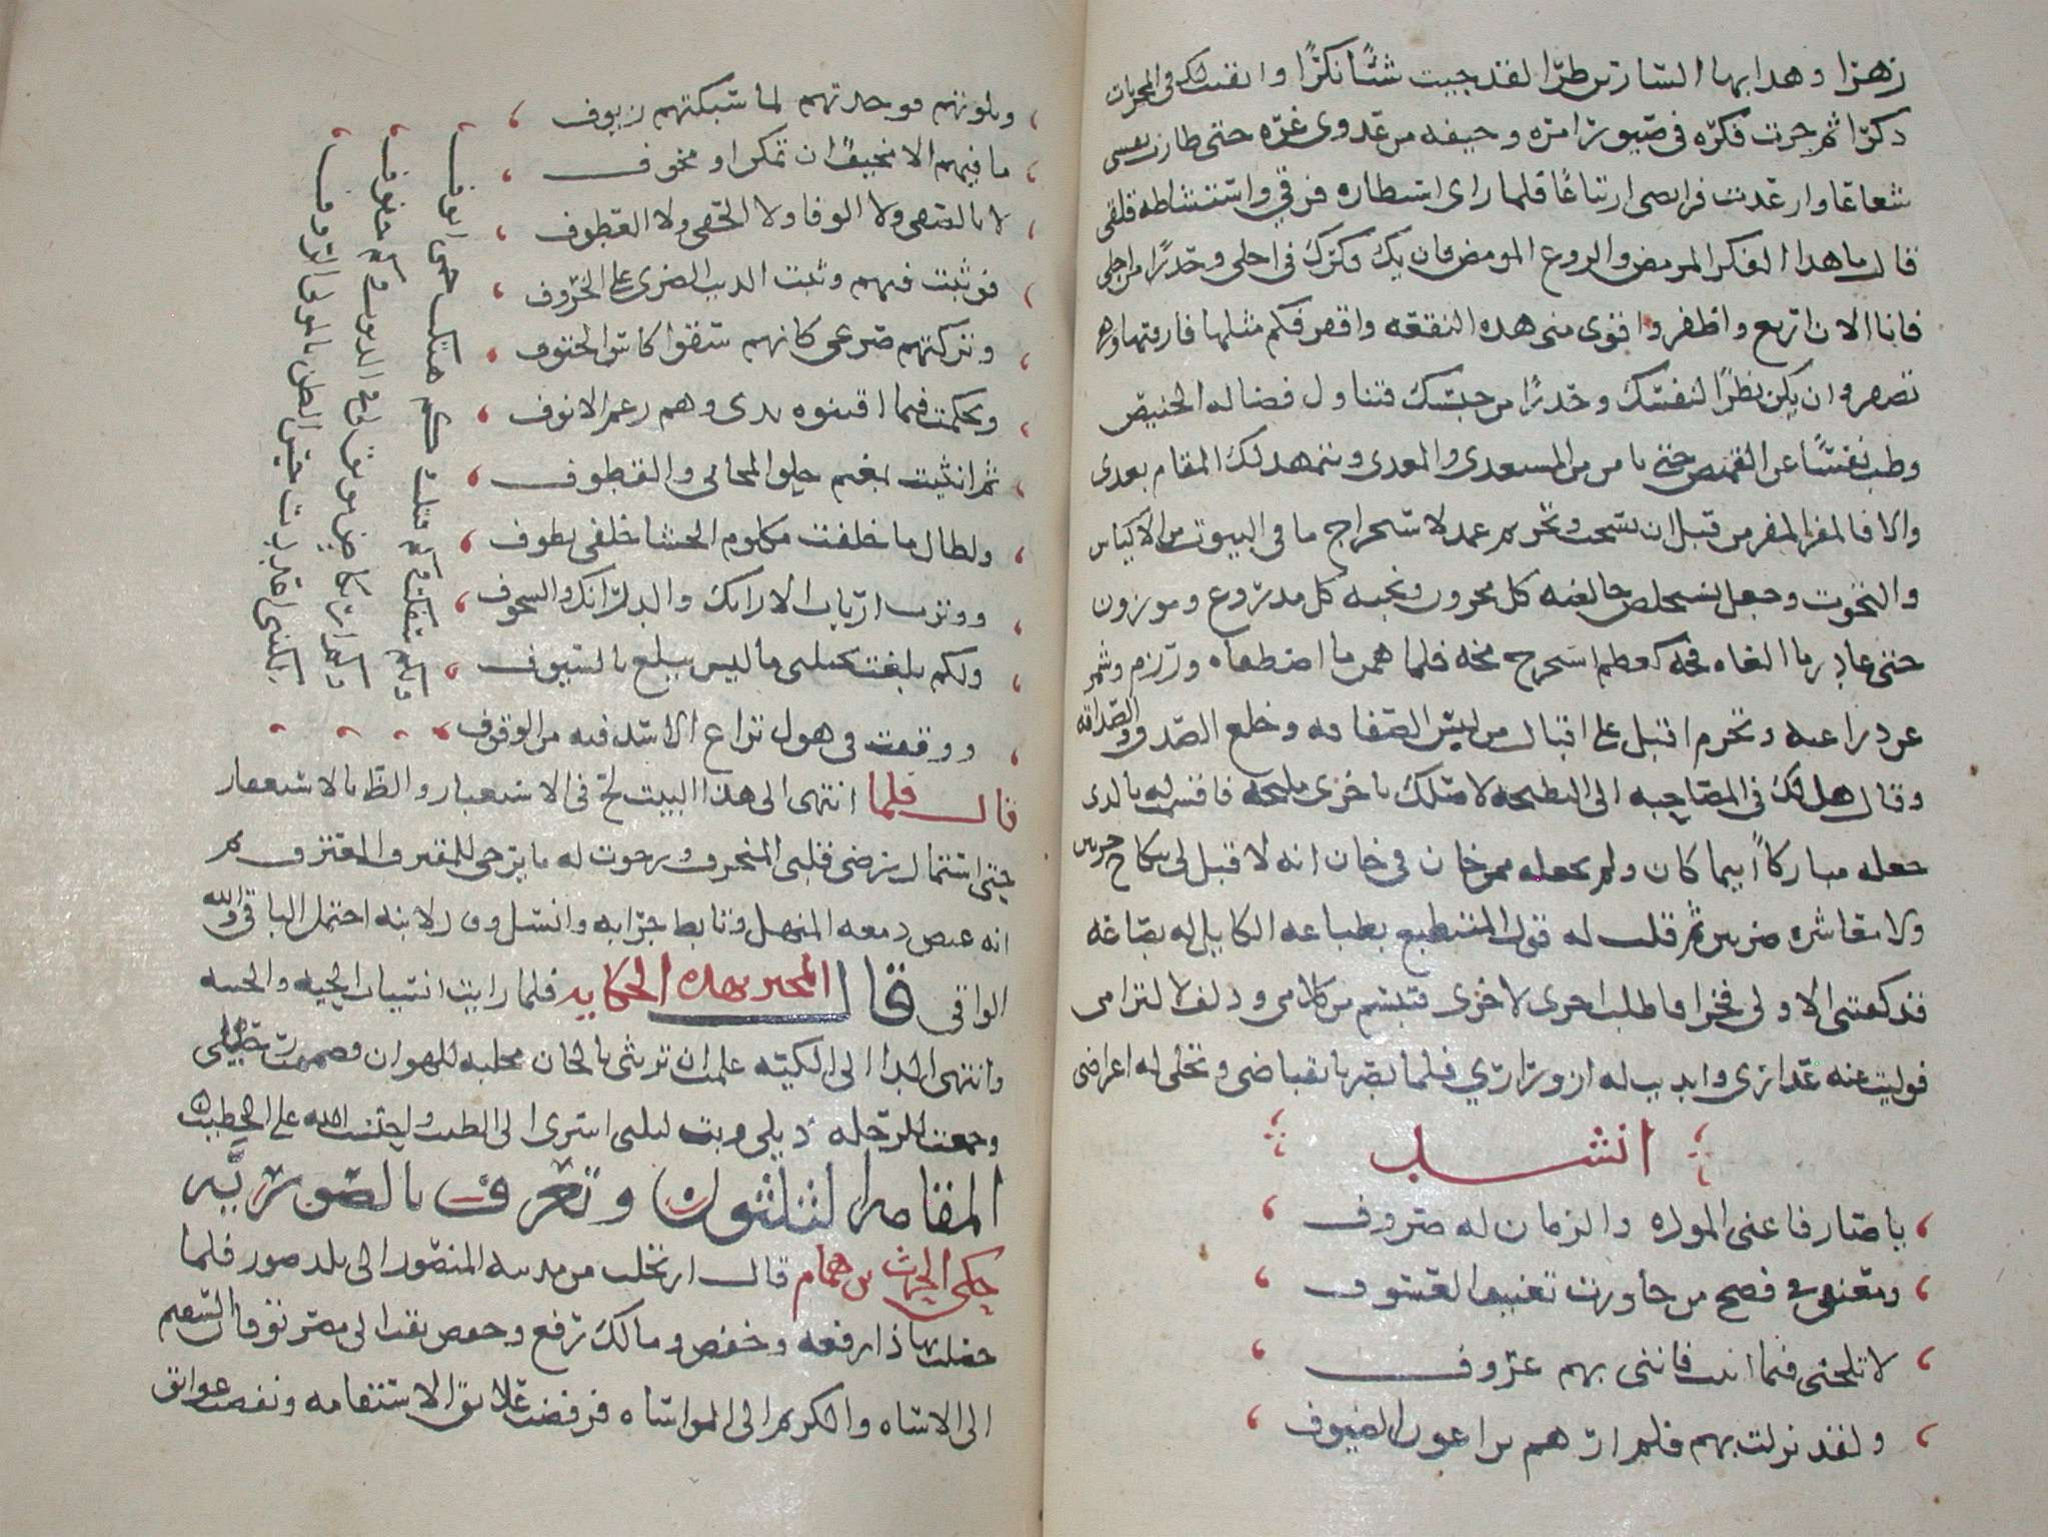 زهرا وهدا بها السارين طرا لقد جيت شئًا نكرًا وابقيت لك في المخزيات
ذكرا ثم حرت فكره في صيور امره وخيفه من عدوى عره حتى طارت نفسي
شعاعا وارعدت فرايصى ارتياعًا فلما راى استطاره فرقي واستشاطه قلقى
قال ما هدا الفكر المرمض والروع المومض فان يك فكرك في اجلى وحذرًا من اجلى
فانا الان ارتع واطفر واقوى منى هده البقعه واقفر فكم مثلها فارقتها وهى
تصفر وان يكن نظرًا لنفسك وحذرًا من حبسك فتناول فضاله الخبيص
وطب نفسًا عن القميص حتى تامن المستعدى والمعدى ويتمهد لك المقام بعدى
والا فالمفر المفر من قبل ان تسحب وتجر ثم عمد لاستخراج ما في البيوت من الاكياس
والتخوت وجعل يستخلص خالصه كل مخزون ونخبه كل مدروع وموزون
حتى غادر ما الغاه فخه كعظم استخرج مخه فلما همن ما اصطفاه ورزم وشمر
عن ذراعيه وتحزم اقبل على اقبال من لبس الصفاقه وخلع الصداقه
وقال هل لك في المصاحبه الى البطيحه لازوجك باخرى مليحه فاقسمت له بالدى
جعله مباركًا اينما كان ولم يجعله ممن خان في خان انه لا قبل لى بنكاح حرتين
ولا معاشره ضرتين ثم قلت له قول المتطبع بطباعه الكايل له بصاعه
قد كفتنى الاولى فخرا فاطلب اخرى للاخرى فتبسم من كلامى ودلف لالتزامى
فوليت عنه عذارى وابديت له ازورارى فلما بصر بانقباضى وتجلى له اعراضى
انشد
يا صارفا عنى الموده والزمان له صروف
ومعنفى فى فضح من جاورت تعنيف العسوف
لا تلحنى فيما اتيت فاننى بهم عروف
ولقد نزلت بهم فلم ارهم يراعون الضيوف
وبلوتهم فوجدتهم لما سبكتهم زيوف
ما فيهم الا مخيفًا ان تمكن او مخوف
لا بالصفى ولا الوفى ولا الحفى ولا العطوف
فوثبت فيهم وثبت الديب الضرى على الخروف
وتركتهم صرعى كانهم سقوا كاس الحتوف
وتحكمت فيما اقتنوه يدى وهم رغم الانوف
ثم انثنيت بمغنم حلو المجانى والقطوف
ولطال ما خلفت مكلوم الحشا خلفى يطوف
ووترت ارباب الارايك والدرانك والسجوف
ولكم بلغت بحيلتى ما ليس يبلع بالسيوف
ووقفت في هول تراع الاسد فيه من الوقوف
ولكم سفكت وكم فتكت وكم هتكت حمى انوف
وكم ارتكاض موبق لى فى الدنوب وكم خفوف
لكننى اعددت حسن الظن بالمولى الروف
قال فلما انتهى الى هذا البيت لج في الاستعبار والظ بالاستغفار
حتى استمال رضى قلبى المنحرف ورجوت له ما يرجى للمقترف المعترف ثم
انه غيض دمعه المنهل وتابط جرابه وانسل وقال لابنه احتمل الباقى والله
الواقى قال المخبر بهذه الحكايه فلما رايت انسياب الحيه والحييه
وانتهى الدا الى الكيه علمت ان تريثى بالخان مجلبه للهوان فضممت رحيلى
وجمعت للرحله ذيلى وبت ليلتى اسرى الى الطيب واحتسب الله على الخطيب
المقامه الثلثون وتعرف بالصوريه
حكى الحرث بن همام قال ارتحلت من مدينه المنصور الى بلد صور فلما
حصلت بها ذا رفعه وخفض ومالك رفع وخفض تقت الى مصر توقان السقيم
الى الاساه والكريم الى المواساه فرفضت علايق الاستقامه ونفضت عوايق